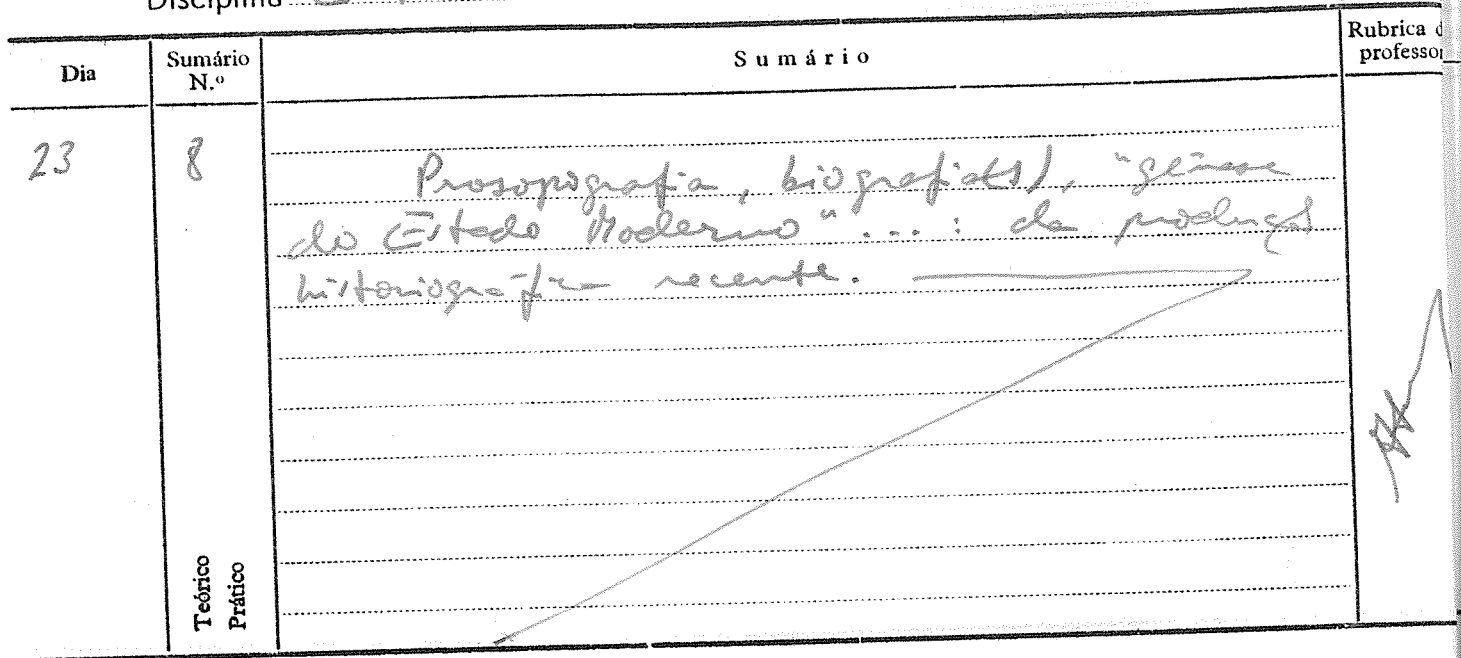 Disciplina
Dia
Sumário N.º
Sumário
Rubrica d
professor
23
8
Prosopografia, biografia(s), "génese
do Estado Moderno" ... : da produção
historiográfica recente.
Teórico
Prático